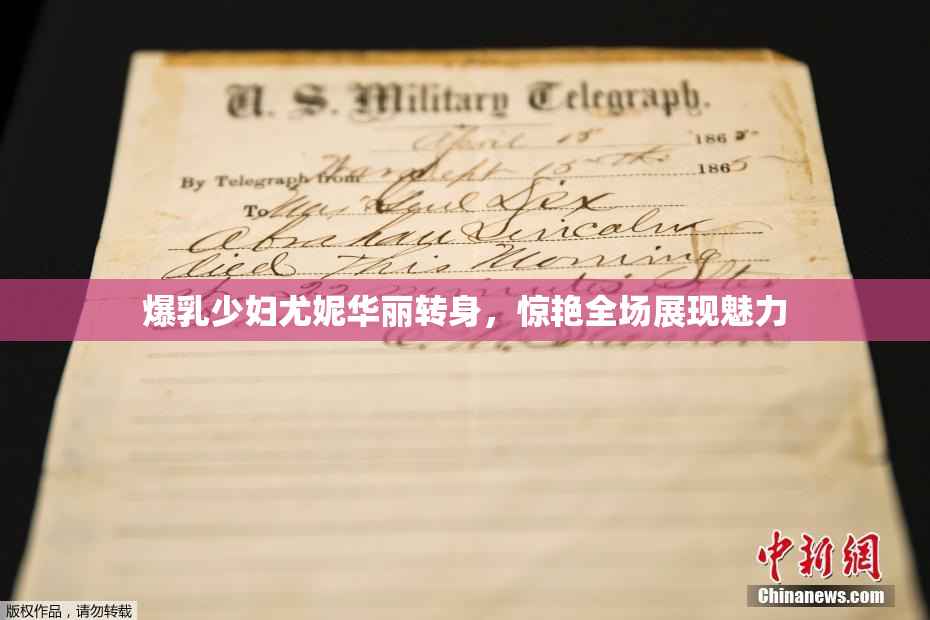 U. S. Military Telegraph.
April 15 1865
By Telegraph from War Dept 15th 1865
To Maj Genl Dix
Abraham Lincoln
died This Morning
22 minutes after
爆乳少妇尤妮华丽转身，惊艳全场展现魅力
E. M. Stanton
中新网
Chinanews.com
版权作品，请勿转载